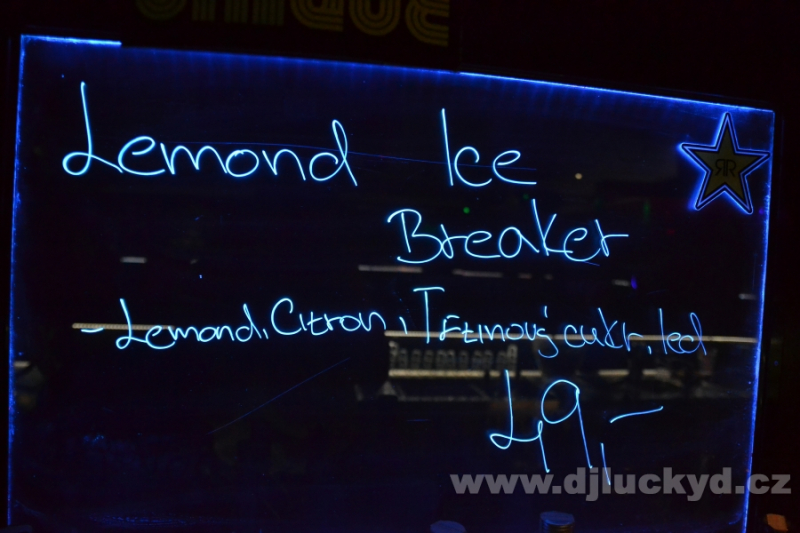 Lemond Ice
Breaker
- Lemond, Citron, Třtinový cukr, led
49,-
www.djluckyd.cz